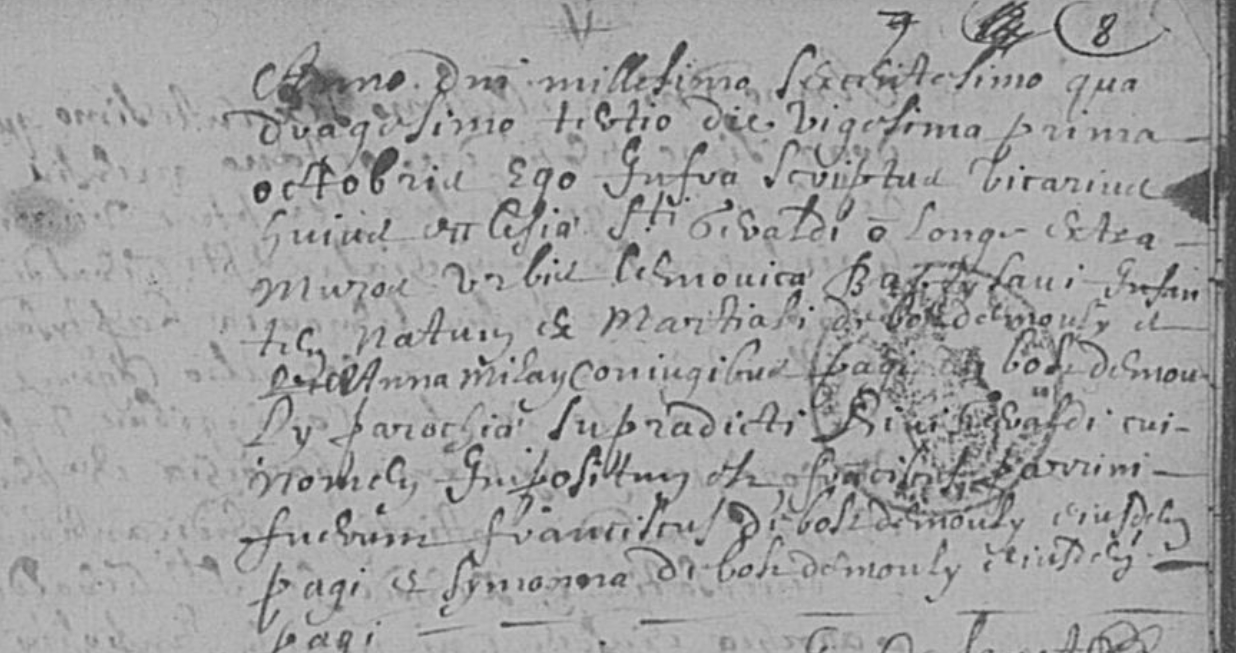 8
Anno Dni millesimo sexcentesimo qua
dragesimo tertio die vigesima prima
octobris Ego Infra scriptus vicarius
huius ecclesiæ Sti Gevaldi o longe extra
muros urbis lemovica Baptisavi Infan
tem natum ex Martiali de bosdemouly et
Anna Milay coniugibus pagi de bosdemou
ly parochiæ supradicti Divi Gevaldi cui
nomen Impositum est franciscus patrini
fuerunt franciscus de bosdemouly eiusdem
pagi et symonna de bosdemouly eiusdem
pagi